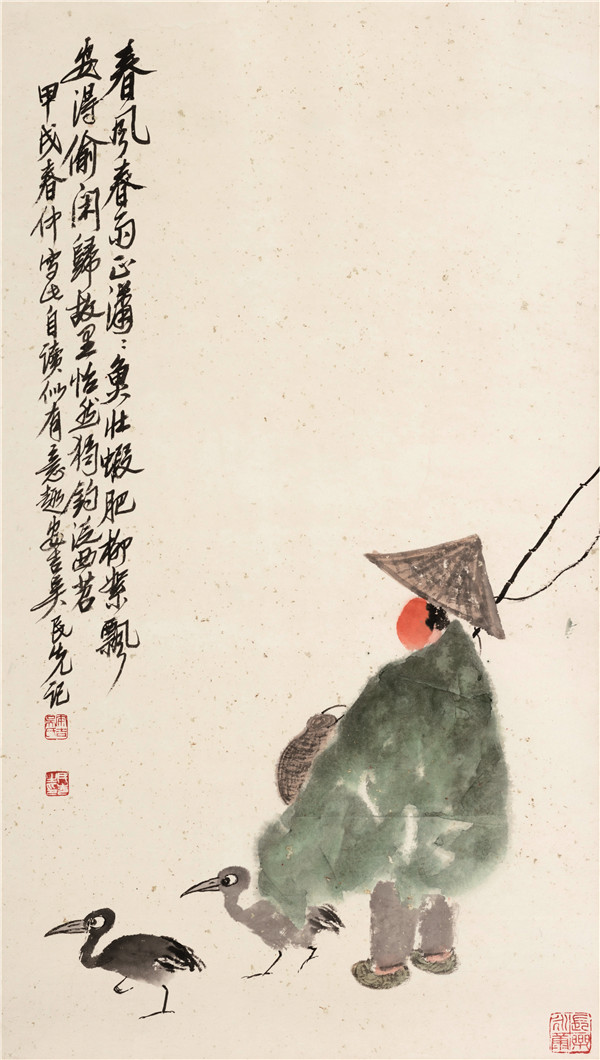 春風春雨正瀟〻魚壯蝦肥柳絮飄
安得偷闲歸故里怡然獨釣泛西苕
甲戌春仲写此自讀似有意趣安吉吴民先记